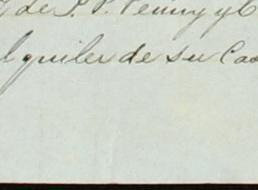 de P. P. Penny y C
lquiler de su Cas